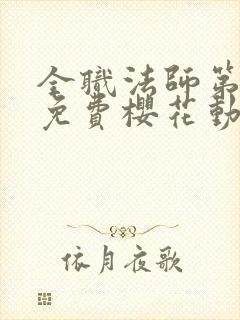 全職法師第
免費櫻花動
依月夜歌